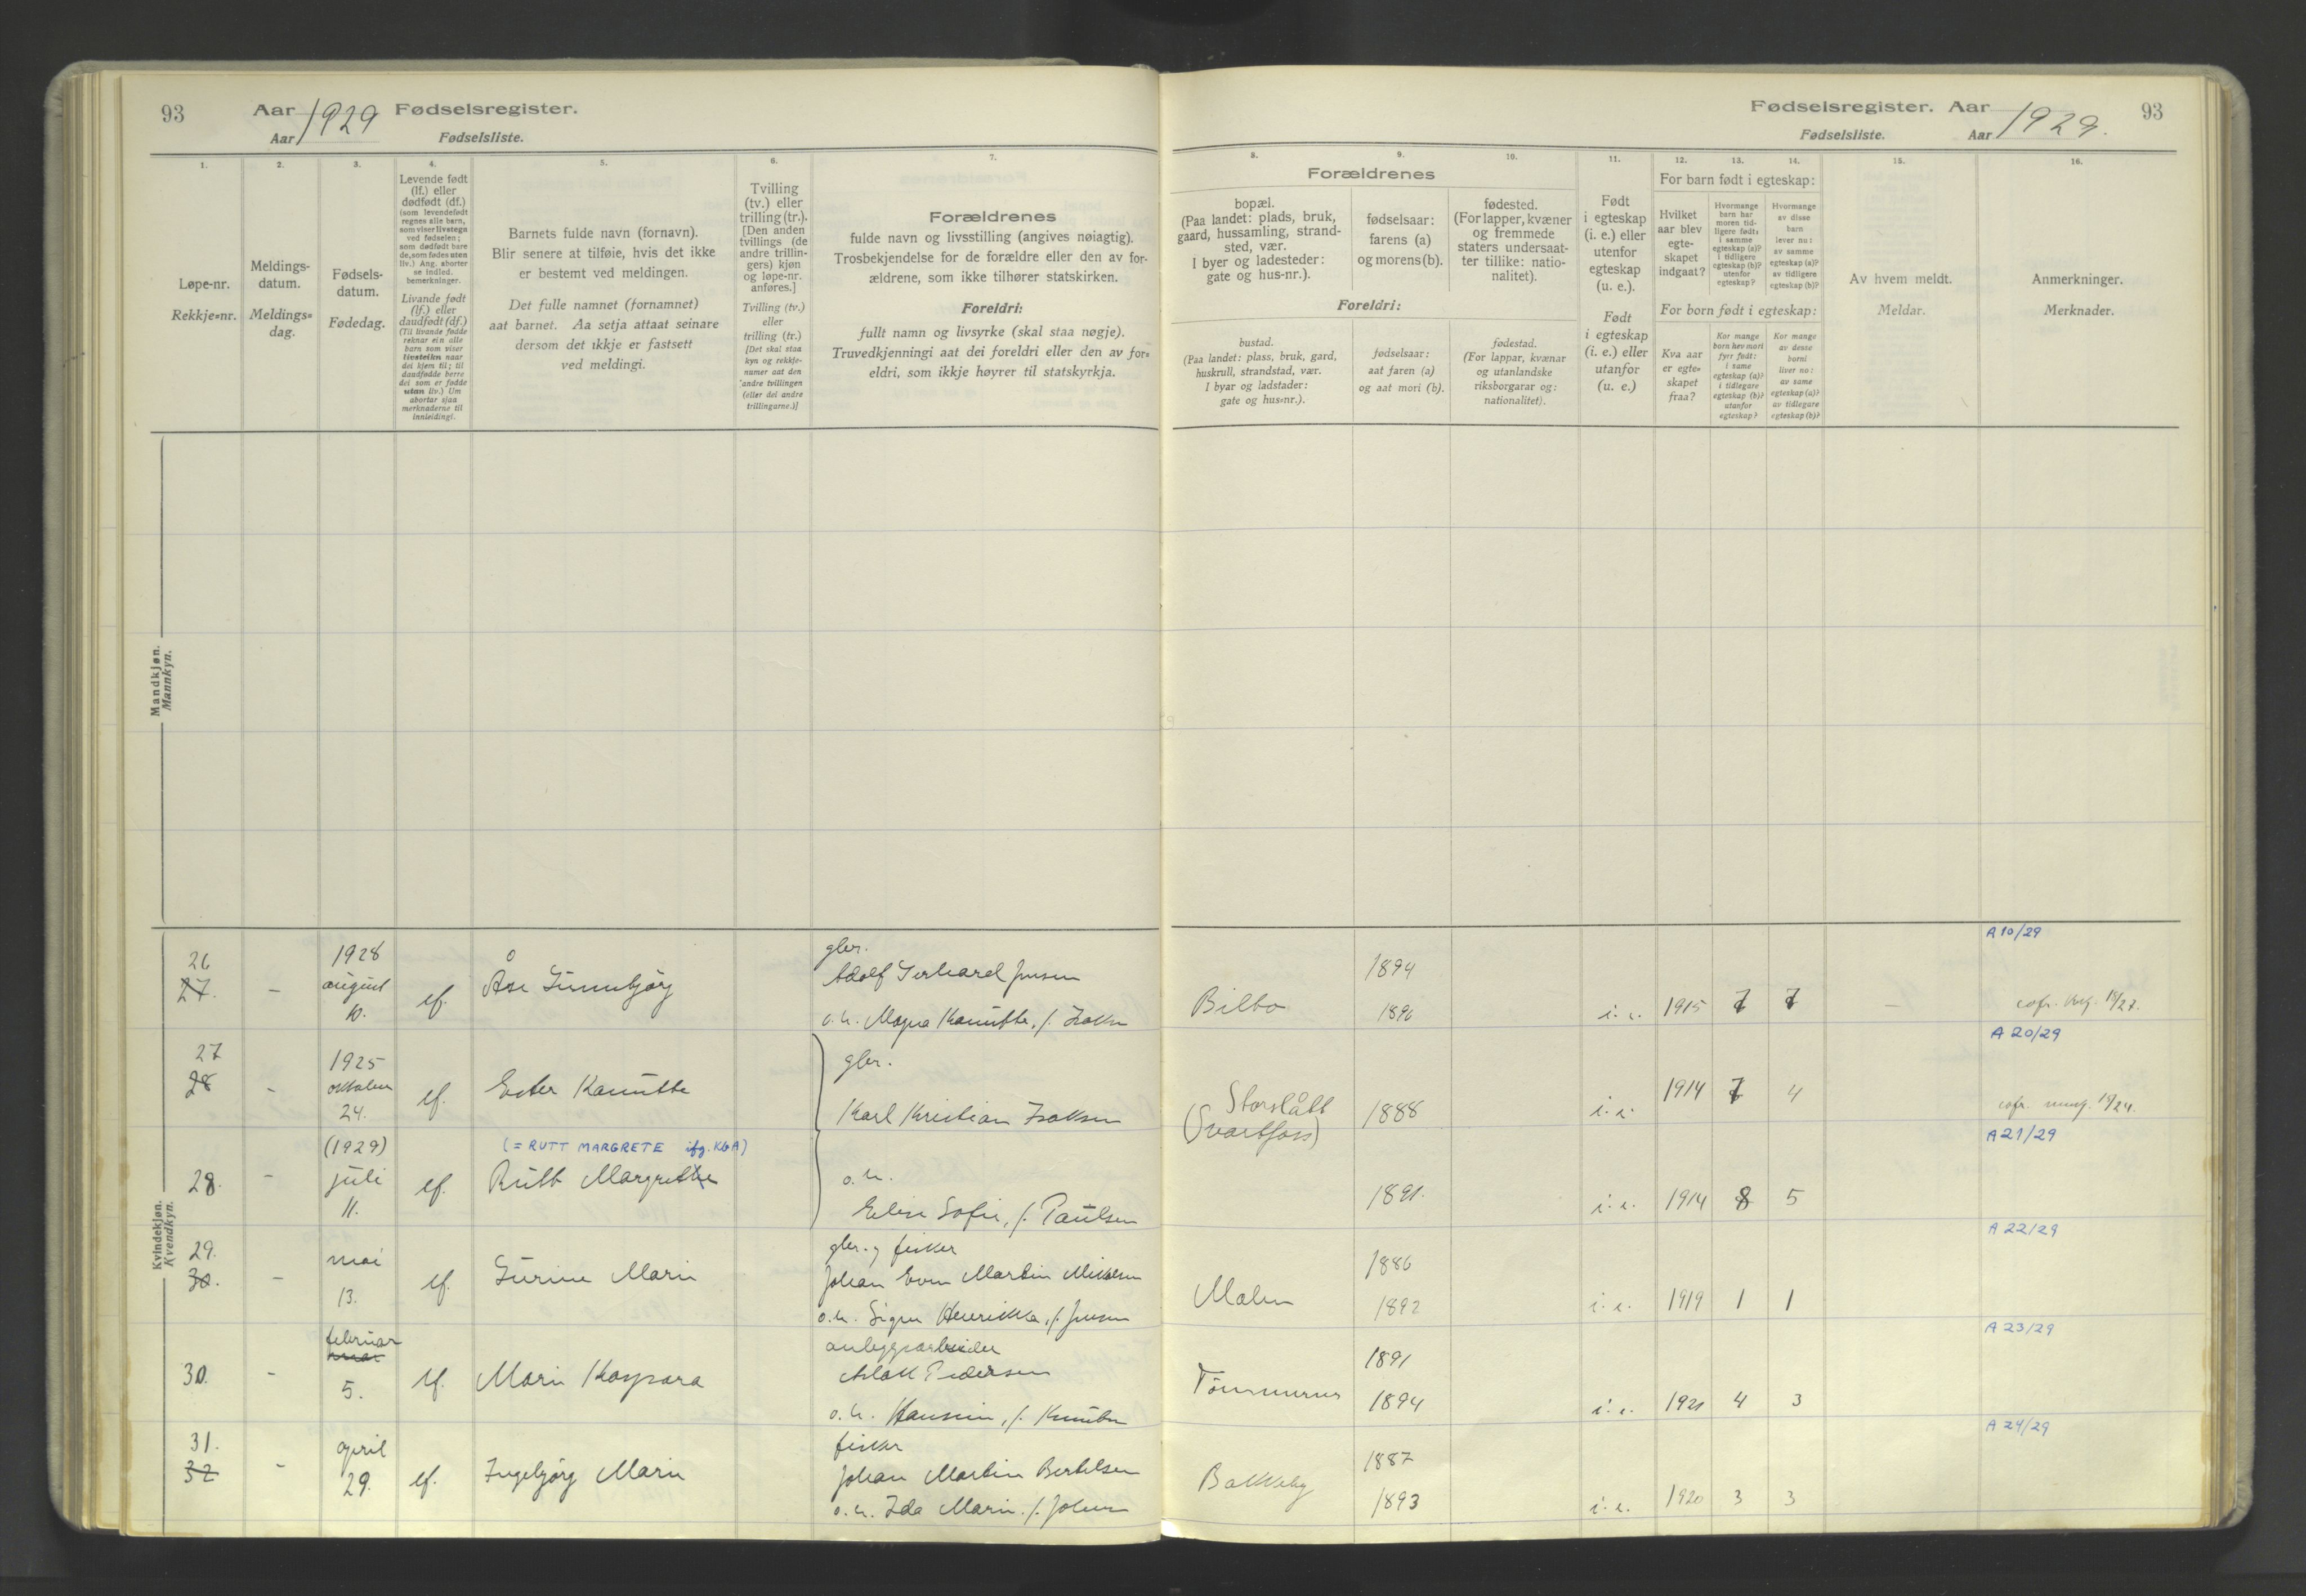 93 Aar 1929 Fødselsregister.
Aar Fødselsliste.
1. 2. 3. 4. 5. 6. 7.
Løpe-nr.
Rekkje=nr.
Meldings-
datum.
Meldings=
dag.
Fødsels-
datum.
Fødedag.
Levende født
(lf.) eller
dødfødt (df.)
(som levendefødt
regnes alle barn,
som viser livstegn
ved fødselen;
som dødfødt bare
de, som fødes uten
liv.) Ang. aborter
se indled.
bemerkninger.
Livande født
(lf.) eller
daudfødt (df.)
(Til livande fødde
reknar ein alle
barn som viser
livsteikn naar
dei kjem til; til
daudfødde berre
dei som er fødde
utan liv.) Um
abortar sjaa
merknaderne til
innleidingi.
Barnets fulde navn (fornavn).
Blir senere at tilføie, hvis det ikke
er bestemt ved meldingen.
Det fulle namnet (fornamnet)
aat barnet. Aa setja attaat seinare
dersom det ikkje er fastsett
ved meldingi.
Tvilling
(tv.) eller
trilling (tr.).
[Den anden
tvillings (de
andre trillin-
gers) kjøn
og løpe-nr.
anføres.]
Tvilling (tv.)
eller
trilling (tr.)
[Det skal staa
kyn og rekkje-
numer aat den
andre tvillingen
(eller dei andre
trillingarne.)]
Forældrenes
fulde navn og livsstilling (angives nøiagtig).
Trosbekjendelse for de forældre eller den av for-
ældrene, som ikke tilhører statskirken.
Foreldri:
fullt namn og livsyrke (skal staa nøgje).
Truvedkjenningi aat dei foreldri eller den av for=
eldri, som ikkje høyrer til statskyrkja.
Mandkjøn.
Mannkyn.
26
27.
-
1928
august
10.
lf.
Åse Gunnbjørg
gbr.
Adolf Gerhard Jensen
o.h. Magna Kanutte, f. Isaksen
27
28
-
1925
oktober
24.
lf.
Ester Kanutte
gbr.
Karl Kristian Isaksen
28.
-
(1929)
juli
11.
lf.
(= RUTT MARGRETE ifg. KbA)
Rutt Margrethe
o.h.
Elise Sofie, f. Paulsen
Kvindekjøn.
Kvendkyn.
29.
30.
-
mai
13.
lf.
Gurine Marie
gbr. og fisker
Johan Even Martin Mikalsen
o.h. Signe Henrikka, f. Jensen
30.
-
februar
mai
5.
lf.
Marie Kaspara
anleggsarbeider
Aslak Pedersen
o.h. Hansine, f. Knutsen
31.
32
-
april
29.
lf.
Ingebjørg Marie
fisker
Johan Martin Bertelsen
o.h. Ida Marie, f. Johnsen
Fødselsregister. Aar 1929. 93
Fødselsliste. Aar
8. 9. 10. 11. 12. 13. 14. 15. 16.
Forældrenes
bopæl.
(Paa landet: plads, bruk,
gaard, hussamling, strand-
sted, vær.
I byer og ladesteder:
gate og hus-nr.).
fødselsaar:
farens (a)
og morens (b).
fødested.
(For lapper, kvæner
og fremmede
staters undersaat-
ter tillike: natio-
nalitet).
Foreldri:
bustad.
(Paa landet: plass, bruk, gard,
huskrull, strandstad, vær.
I byar og ladstader:
gate og hus=nr.).
fødselsaar:
aat faren (a)
og aat mori (b).
fødestad.
(For lappar, kvænar
og utanlandske
riksborgarar og:
nationalitet).
Født
i egteskap
(i. e.) eller
utenfor
egteskap
(u. e.).
Født
i egteskap
(i. e.) eller
utanfor
(u. e.)
For barn født i egteskap:
Hvilket
aar blev
egte-
skapet
indgaat?
Hvormange
barn har
moren tid-
ligere født:
i samme
egteskap (a)?
i tidligere
egteskap (b)?
utenfor
egteskap?
Hvormange
av disse
barn
lever nu:
av samme
egteskap (a)?
av tidligere
egteskap (b)?
For born født i egteskap:
Kva aar
er egte=
skapet
fraa?
Kor mange
born hev mori
fyrr født:
i same
egteskap (a)?
i tidlegare
egteskap (b)?
utanfor
egteskap?
Kor mange
av desse
borni
liver no:
av same
egteskap (a)?
av tidlegare
egteskap (b)?
Av hvem meldt.
Meldar.
Anmerkninger.
Merknader.
A 10/29
Bilto
1894
1896
i. e.
1915
7
7
-
A 20/29
Storslått
(Svartfoss)
1888
i. e.
1914
7
4
A 21/29
1891.
i. e.
1914
8
5
A 22/29
Malen
1886
1892
i. e.
1919
1
1
A 23/29
Tömmernes
1891
1894
i. e.
1921
4
3
A 24/29
Bakkeby
1887
1893
i. e.
1920
3
3